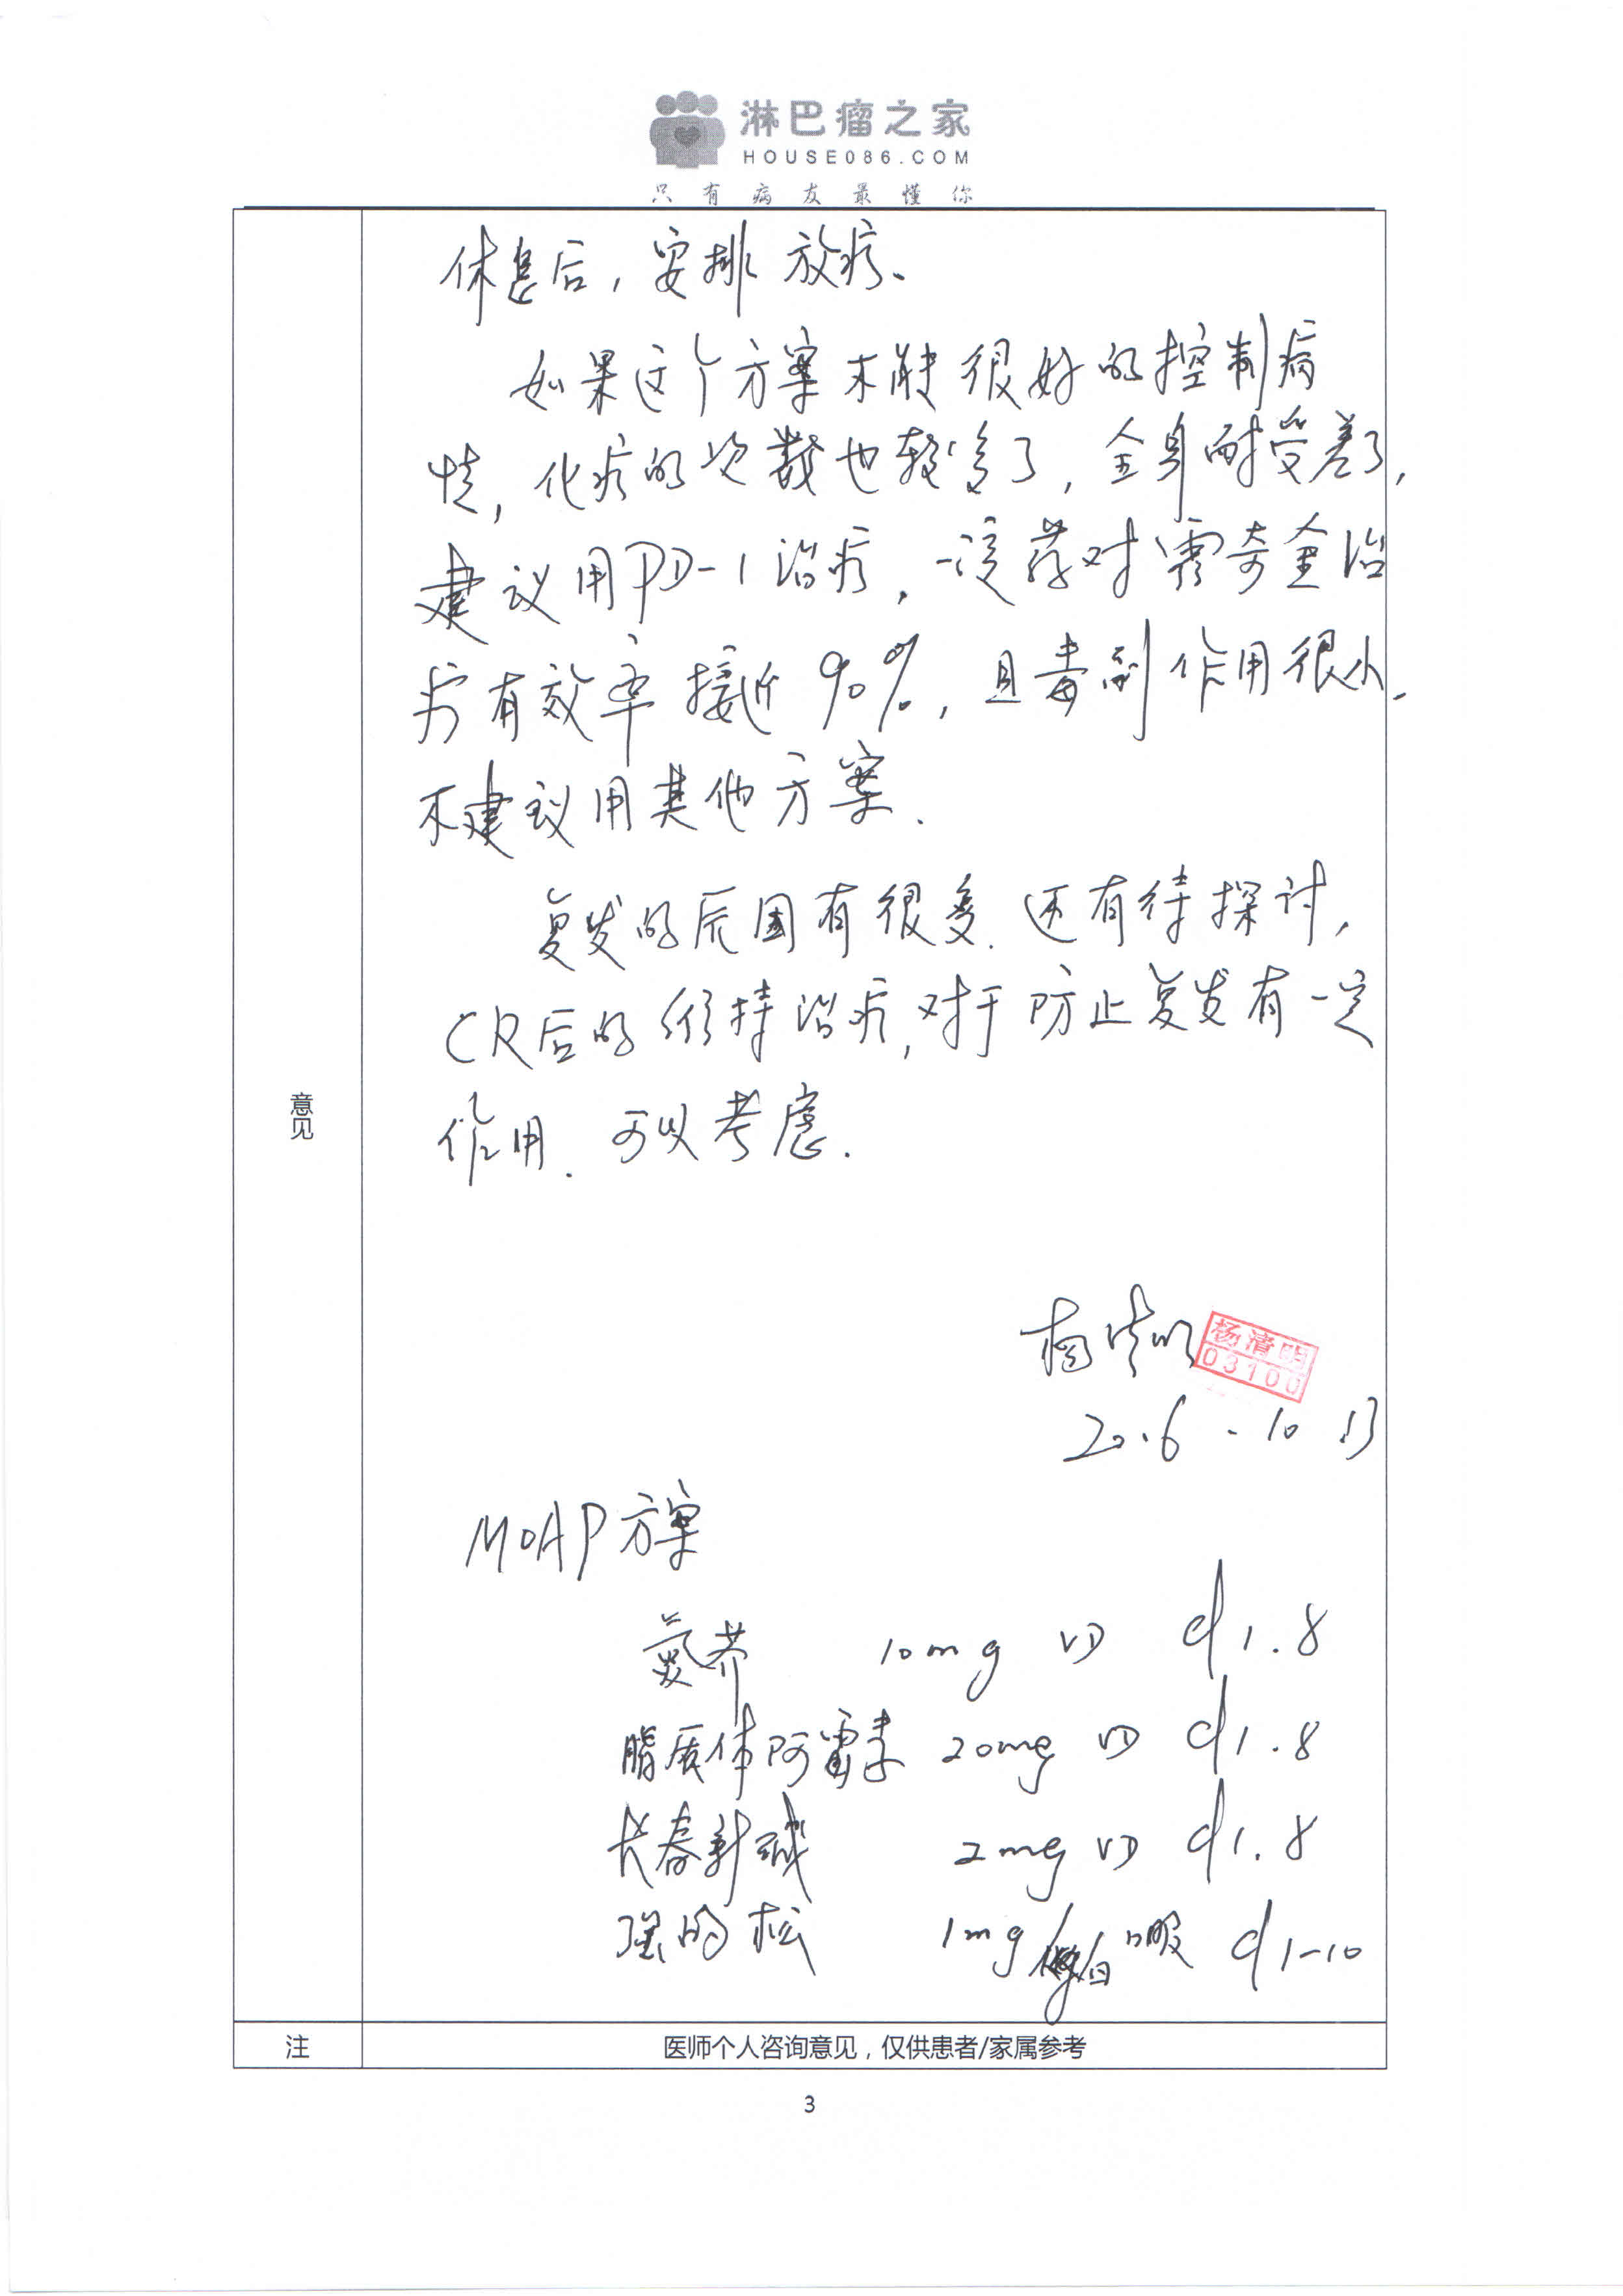 淋巴瘤之家
HOUSE086.COM
只有病友最懂你
休息后，安排放疗。
如果这个方案不能很好的控制病
情，化疗的次数也较多了，全身耐受差了，
建议用PD-1治疗，该药对霍奇金治
疗有效率接近90%，且毒副作用很小.
不建议用其他方案.
复发的原因有很多.还有待探讨，
CR后的维持治疗，对于防止复发有一定
作用.可以考虑.
意见
杨清明
杨清明
03100
2016-10.13
MOAP方案
氮芥 10mg VD d1.8
脂质体阿霉素 20mg VD d1.8
长春新碱 2mg VD d1.8
强的松 1mg/ 日 口服 d1-10
注
医师个人咨询意见，仅供患者/家属参考
3